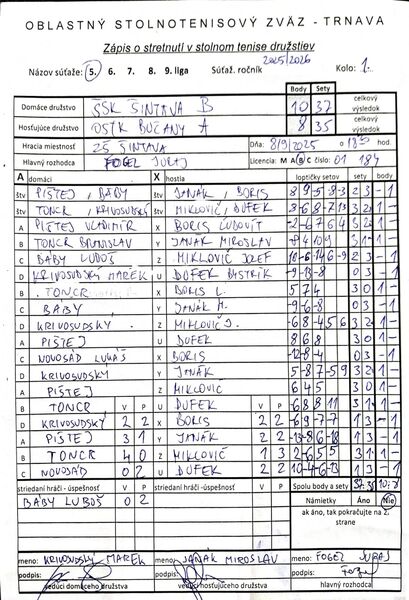 OBLASTNÝ STOLNOTENISOVÝ ZVÄZ - TRNAVA
Zápis o stretnutí v stolnom tenise družstiev
Názov súťaže: 5. 6. 7. 8. 9. liga Súťaž. ročník 2025/2026 Kolo: 1.
Body Sety
Domáce družstvo ŠSK ŠINTAVA B 10 37 celkový výsledok
Hosťujúce družstvo OSTK BUČANY A 8 35 celkový výsledok
Hracia miestnosť ZŠ ŠINTAVA Dňa: 8/9/2025 o
Hlavný rozhodca FOGEL JURAJ Licencia: M A B C číslo: 01 184
A domáci X hostia loptičky setov sety body
štv PIŠTEJ, BÁBY štv JANÁK, BORIS 2 3 - 1
štv TONCR, KRIVOSUDSKÝ štv MIKLOVIČ, DUFEK 3 2 1 -
A PIŠTEJ VLADIMÍR X BORIS ĽUDOVÍT 3 2 1 -
B TONCR BRONISLAV Y JANÁK MIROSLAV 3 1 1 -
C BÁBY ĽUBOŠ Z MIKLOVIČ JOZEF 2 3 - 1
D KRIVOSUDSKÝ MAREK U DUFEK 0 3 - 1
B TONCR X BORIS Ľ. 5 7 4 3 0 1 -
C BÁBY Y JANÁK M. -9 -6 -8 0 3 - 1
D KRIVOSUDSKÝ Z MIKLOVIČ J. 3 2 1 -
A PIŠTEJ U DUFEK 8 6 8 3 0 1 -
C NOVOSÁD LUKÁŠ X BORIS -12 -8 -4 0 3 - 1
D KRIVOSUDSKÝ Y JANÁK 3 2 1 -
A PIŠTEJ Z MIKLOVIČ 6 4 5 3 0 1 -
B TONCR V P U DUFEK V P -6 8 8 11 3 1 1 -
D KRIVOSUDSKÝ 2 2 X BORIS 2 2 -6 9 -7 -7 1 3 - 1
A PIŠTEJ 3 1 Y JANÁK 2 2 1 3 - 1
B TONCR 4 0 Z MIKLOVIČ 1 3 3 1 1 -
C NOVOSÁD 0 2 U DUFEK 2 2 1 3 - 1
striedaní hráči - úspešnosť V P striedaní hráči - úspešnosť V P Spolu body a sety 37:35 10:8
BÁBY ĽUBOŠ 0 2 Námietky Áno Nie
ak áno, tak pokračujte na 2. strane
meno: KRIVOSUDSKÝ MAREK meno: JANÁK MIROSLAV meno: FOGEL JURAJ
podpis: podpis: podpis:
vedúci domáceho družstva vedúci hosťujúceho družstva hlavný rozhodca